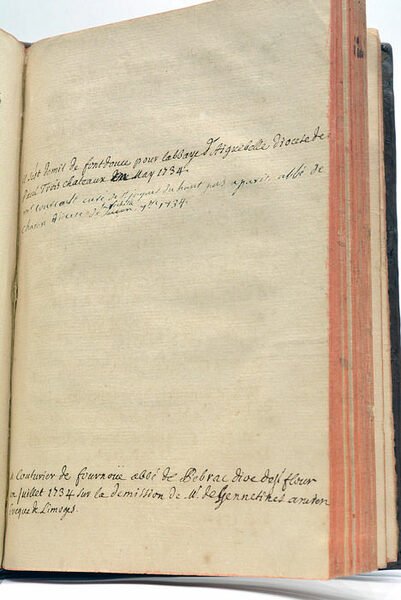 Il s'est demis de fontdouce pour l'abbaye d'Aiguebelle diocese de
Paul Trois chateaux en May 1734.
mr courcault curé de St jaques du haut pas a paris abbé de
charon diocese de 1734.
Couturier de fournoüe abbé de Pebrac dive de St flour
en Juillet 1734 sur la demission de Mr. de Gennetines ancien
Eveque de Limoges.